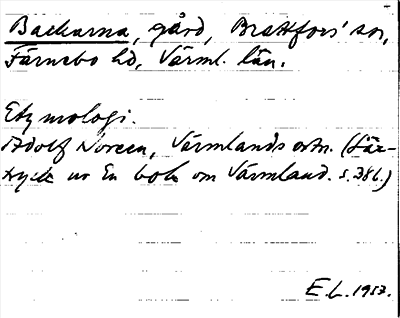 Backarna, gård, Brattfors' sn,
Färnebo hd, Värml. län.
Etymologi.
Adolf Noreen, Värmlands ortn. (Sär-
tryck ur En bok om Värmland. s. 386.)
E. L. 1957.